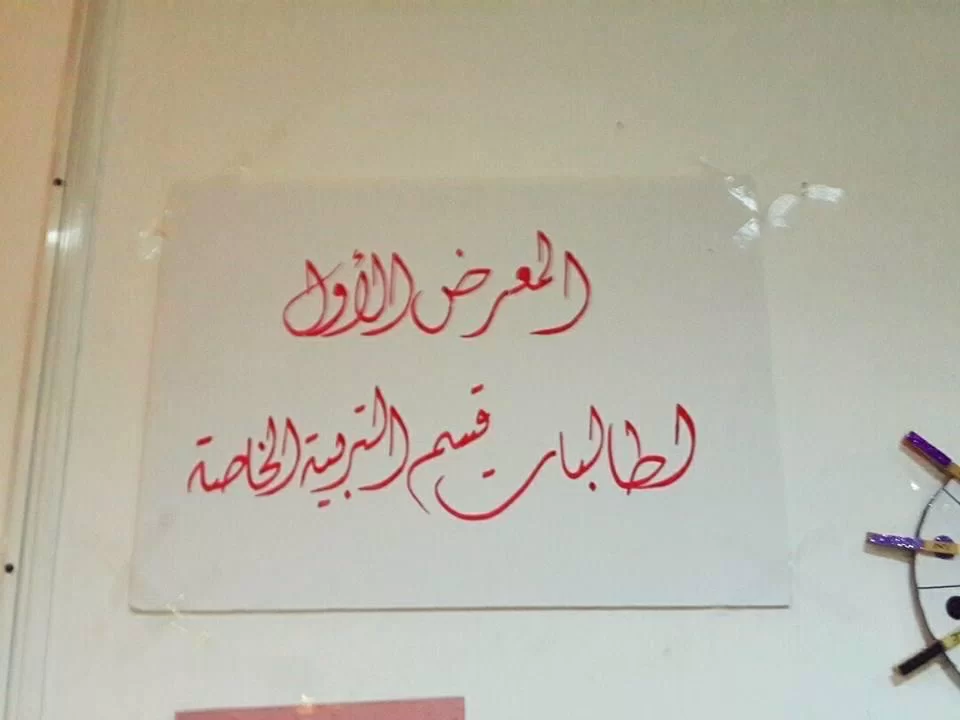 المعرض الأول
لطالبات قسم التربية الخاصة